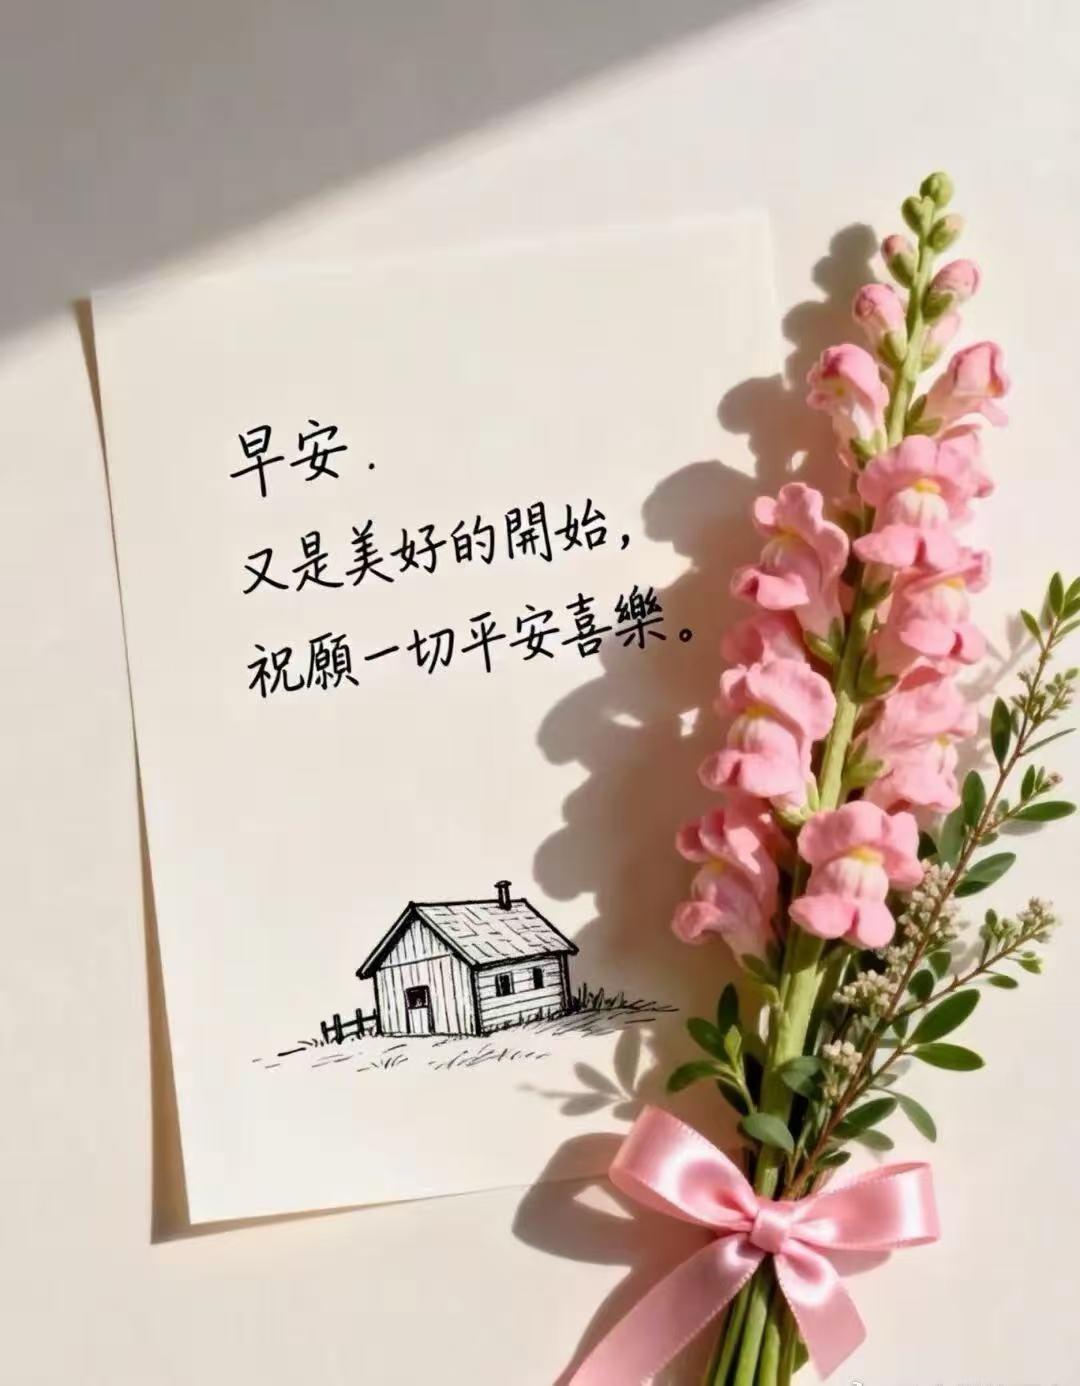 早安.
又是美好的開始，
祝願一切平安喜樂。